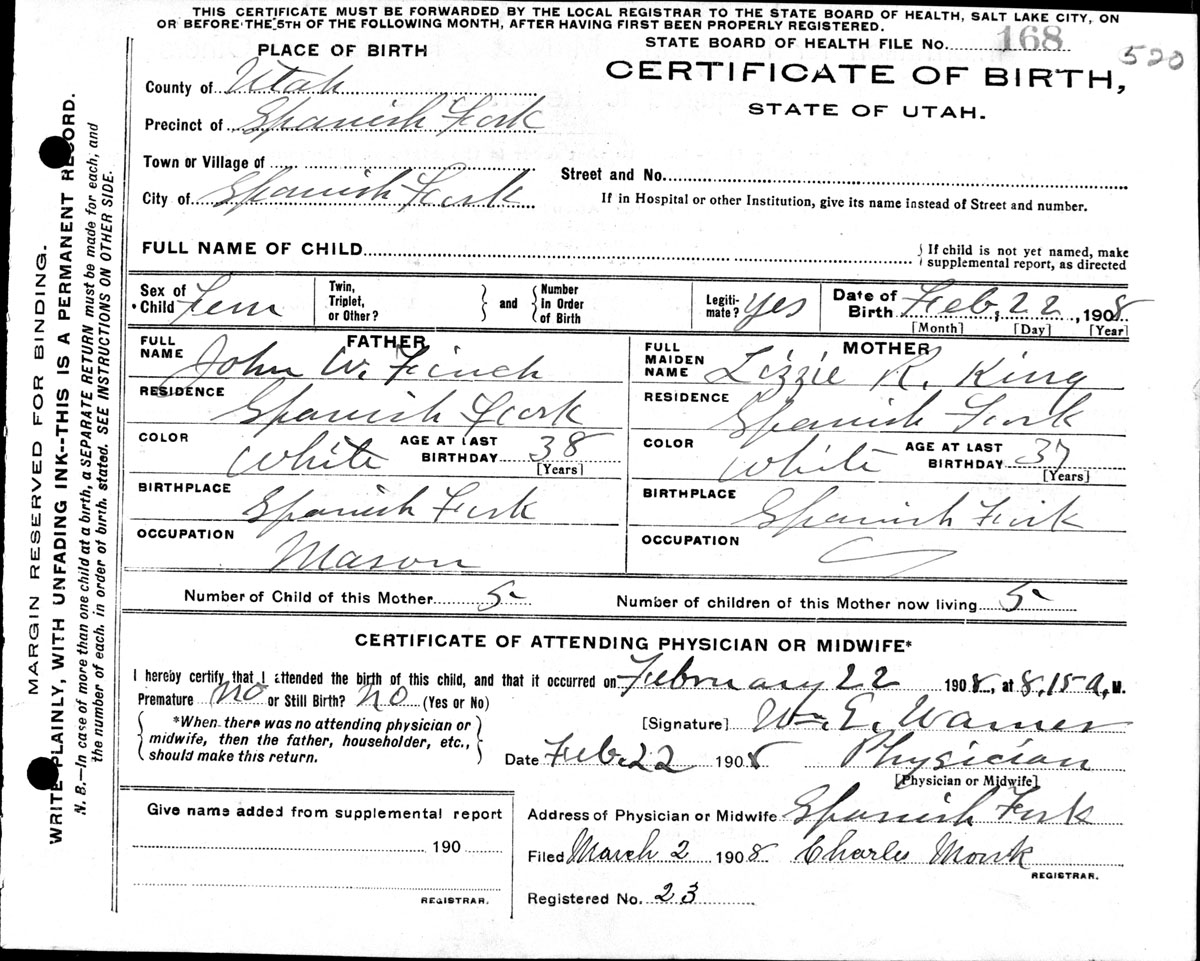 THIS CERTIFICATE MUST BE FORWARDED BY THE LOCAL REGISTRAR TO THE STATE BOARD OF HEALTH, SALT LAKE CITY, ON
OR BEFORE THE 5TH OF THE FOLLOWING MONTH, AFTER HAVING FIRST BEEN PROPERLY REGISTERED.
PLACE OF BIRTH
STATE BOARD OF HEALTH FILE No. 168
520
CERTIFICATE OF BIRTH,
STATE OF UTAH.
County of Utah
Precinct of Spanish Fork
Town or Village of
Street and No.
City of Spanish Fork
If in Hospital or other Institution, give its name instead of Street and number.
FULL NAME OF CHILD
If child is not yet named, make
supplemental report, as directed
Sex of Child Fem
Twin, Triplet, or Other?
and
Number In Order of Birth
Legiti-mate? Yes
Date of Birth Feb, 22, 1908
[Month] [Day] [Year]
FATHER
FULL NAME John W. Finch
RESIDENCE Spanish Fork
COLOR White AGE AT LAST BIRTHDAY 38
[Years]
BIRTHPLACE Spanish Fork
OCCUPATION Mason
MOTHER
FULL MAIDEN NAME Lizzie R. King
RESIDENCE Spanish Fork
COLOR White AGE AT LAST BIRTHDAY 37
[Years]
BIRTHPLACE Spanish Fork
OCCUPATION
Number of Child of this Mother 5
Number of children of this Mother now living 5
CERTIFICATE OF ATTENDING PHYSICIAN OR MIDWIFE*
I hereby certify that I attended the birth of this child, and that it occurred on February 22 1908, at 8.15 a. M.
Premature No or Still Birth? No (Yes or No)
*When there was no attending physician or
midwife, then the father, householder, etc.,
should make this return.
[Signature] Wm. E. Warner
Date Feb. 22 1908 Physician
[Physician or Midwife]
Give name added from supplemental report
190
REGISTRAR.
Address of Physician or Midwife Spanish Fork
Filed March 2 1908 Charles Monk
REGISTRAR.
Registered No. 23
MARGIN RESERVED FOR BINDING.
WRITE PLAINLY, WITH UNFADING INK--THIS IS A PERMANENT RECORD.
N. B.—In case of more than one child at a birth, a SEPARATE RETURN must be made for each, and
the number of each. in order of birth. stated. SEE INSTRUCTIONS ON OTHER SIDE.